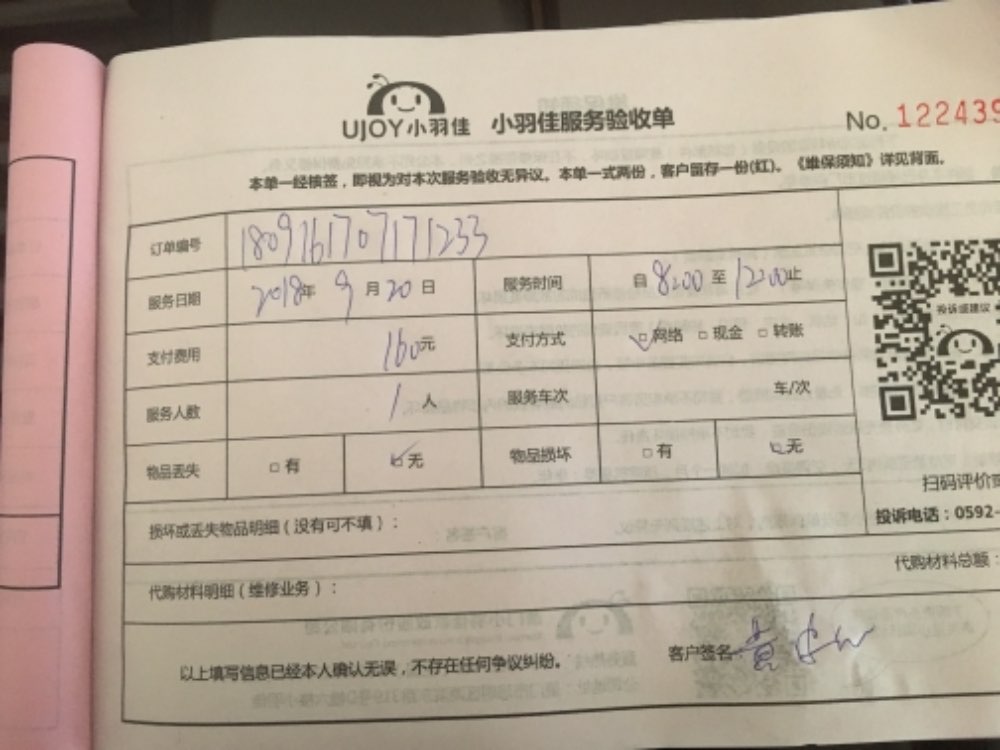 UJOY小羽佳 小羽佳服务验收单 No. 122439
本单一经核签，即视为对本次服务验收无异议。本单一式两份，客户留存一份(红)。《维保须知》详见背面。
订单编号 1809161707171233
服务日期 2018年 9月20日 服务时间 自8:00至12:00止
支付费用 160元 支付方式 □网络 □现金 □转账
投诉或建议
服务人数 1人 服务车次 车/次
物品丢失 □有 □无 物品损坏 □有 □无
扫码评价
损坏或丢失物品明细（没有可不填）：
投诉电话：0592-
代购材料明细（维修业务）： 代购材料总额：
以上填写信息已经本人确认无误，不存在任何争议纠纷。 客户签名 黄